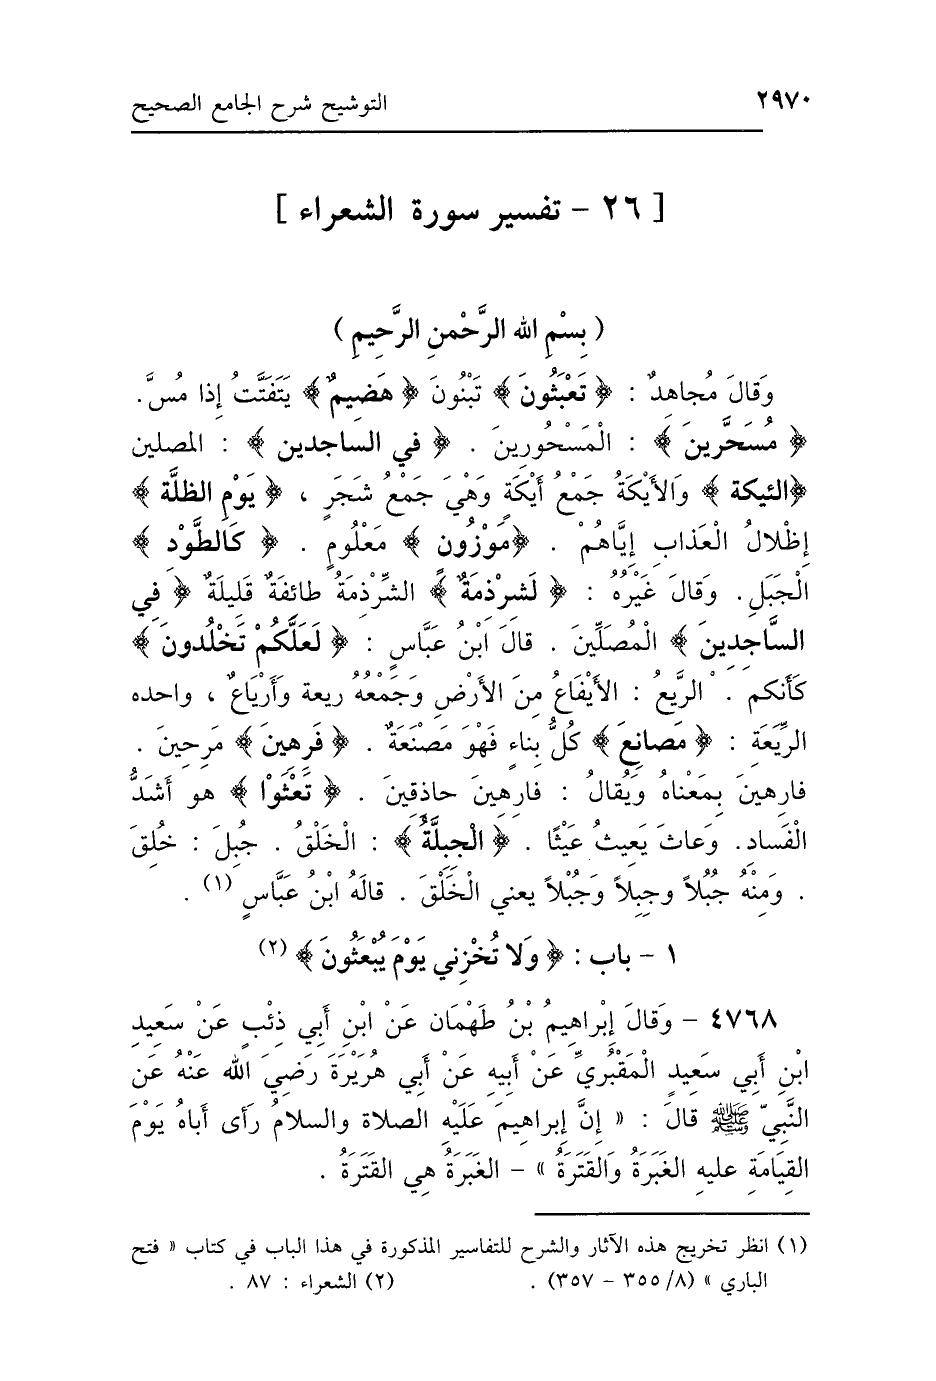 ٢٩٧٠
التوشيح شرح الجامع الصحيح
[ ٢٦ - تفسير سورة الشعراء ]
( بِسْمِ الله الرَّحْمنِ الرَّحِيمِ )
وَقالَ مُجاهِدٌ : ﴿ تَعْبَثُونَ ﴾ تَبْنُونَ ﴿ هَضِيمٌ ﴾ يَتَفَتَّتُ إِذا مُسَّ .
﴿ مُسَحَّرِينَ ﴾ : الْمَسْحُورِينَ . ﴿ في الساجدين ﴾ : المصلين
﴿الئيكة ﴾ وَالأَيْكَةُ جَمْعُ أَيْكَةٍ وَهْيَ جَمْعُ شَجَرٍ ، ﴿ يَوْمِ الظلَّة ﴾
إِظْلالُ الْعَذابِ إِيَّاهُمْ . ﴿مَوْزُون ﴾ مَعْلُومٍ . ﴿ كَالطَّوْد ﴾
الْجَبَلِ . وَقالَ غَيْرُهُ : ﴿ لَشِرْذِمَةٌ ﴾ الشِّرْذِمَةُ طائفَةٌ قَلِيلَةٌ ﴿ فِي
السَّاجِدِينَ ﴾ الْمُصَلِّينَ . قالَ ابْنُ عَبَّاسٍ : ﴿ لَعَلَّكُمْ تَخْلُدونَ ﴾
كَأَنكم . الرَّيعُ : الأَيْفَاعُ مِنَ الأَرْضِ وَجَمْعُهُ ريعة وَأَرْيَاعٌ ، واحده
الرِّيَعَة : ﴿ مَصانِعَ ﴾ كُلُّ بِناءٍ فَهْوَ مَصْنَعَةٌ . ﴿ فَرِهينَ ﴾ مَرِحينَ .
فارِهينَ بِمَعْناهُ وَيُقالُ : فارِهينَ حاذِقينَ . ﴿ تَعْثَوْا ﴾ هو أَشَدُّ
الْفَساد. وَعاثَ يَعِيثُ عَيْثًا . ﴿ الْجِبِلَّةُ ﴾ : الْخَلْقُ . جُبِلَ : خُلِقَ
. وَمِنْهُ جُبُلاً وجِبِلاً وَجُبْلاً يعني الْخَلْقَ . قالَهُ ابْنُ عَبَّاسٍ (١) .
١ - باب : ﴿ وَلا تُخْزِنِي يَوْمَ يُبْعَثُونَ ﴾ (٢)
٤٧٦٨ - وَقالَ إِبْراهِيمُ بْنُ طَهْمَان عَنْ ابْنِ أَبي ذِئْبٍ عَنْ سَعِيدِ
ابْنِ أَبي سَعِيدٍ الْمَقْبُرِيِّ عَنْ أَبيهِ عَنْ أَبي هُرَيْرَةَ رَضِيَ الله عَنْهُ عَنِ
النَّبِيِّ ﷺ قالَ : « إنَّ إبراهيمَ عَلَيْهِ الصلاة والسلامُ رَأى أَباهُ يَوْمَ
القِيَامَةِ عليهِ الغَبَرَةُ وَالقَتَرَةُ » - الغَبَرَةُ هِي القَتَرَةُ .
(١) انظر تخريج هذه الآثار والشرح للتفاسير المذكورة في هذا الباب في كتاب « فتح
الباري » (٨/ ٣٥٥ - ٣٥٧) .
(٢) الشعراء : ٨٧ .